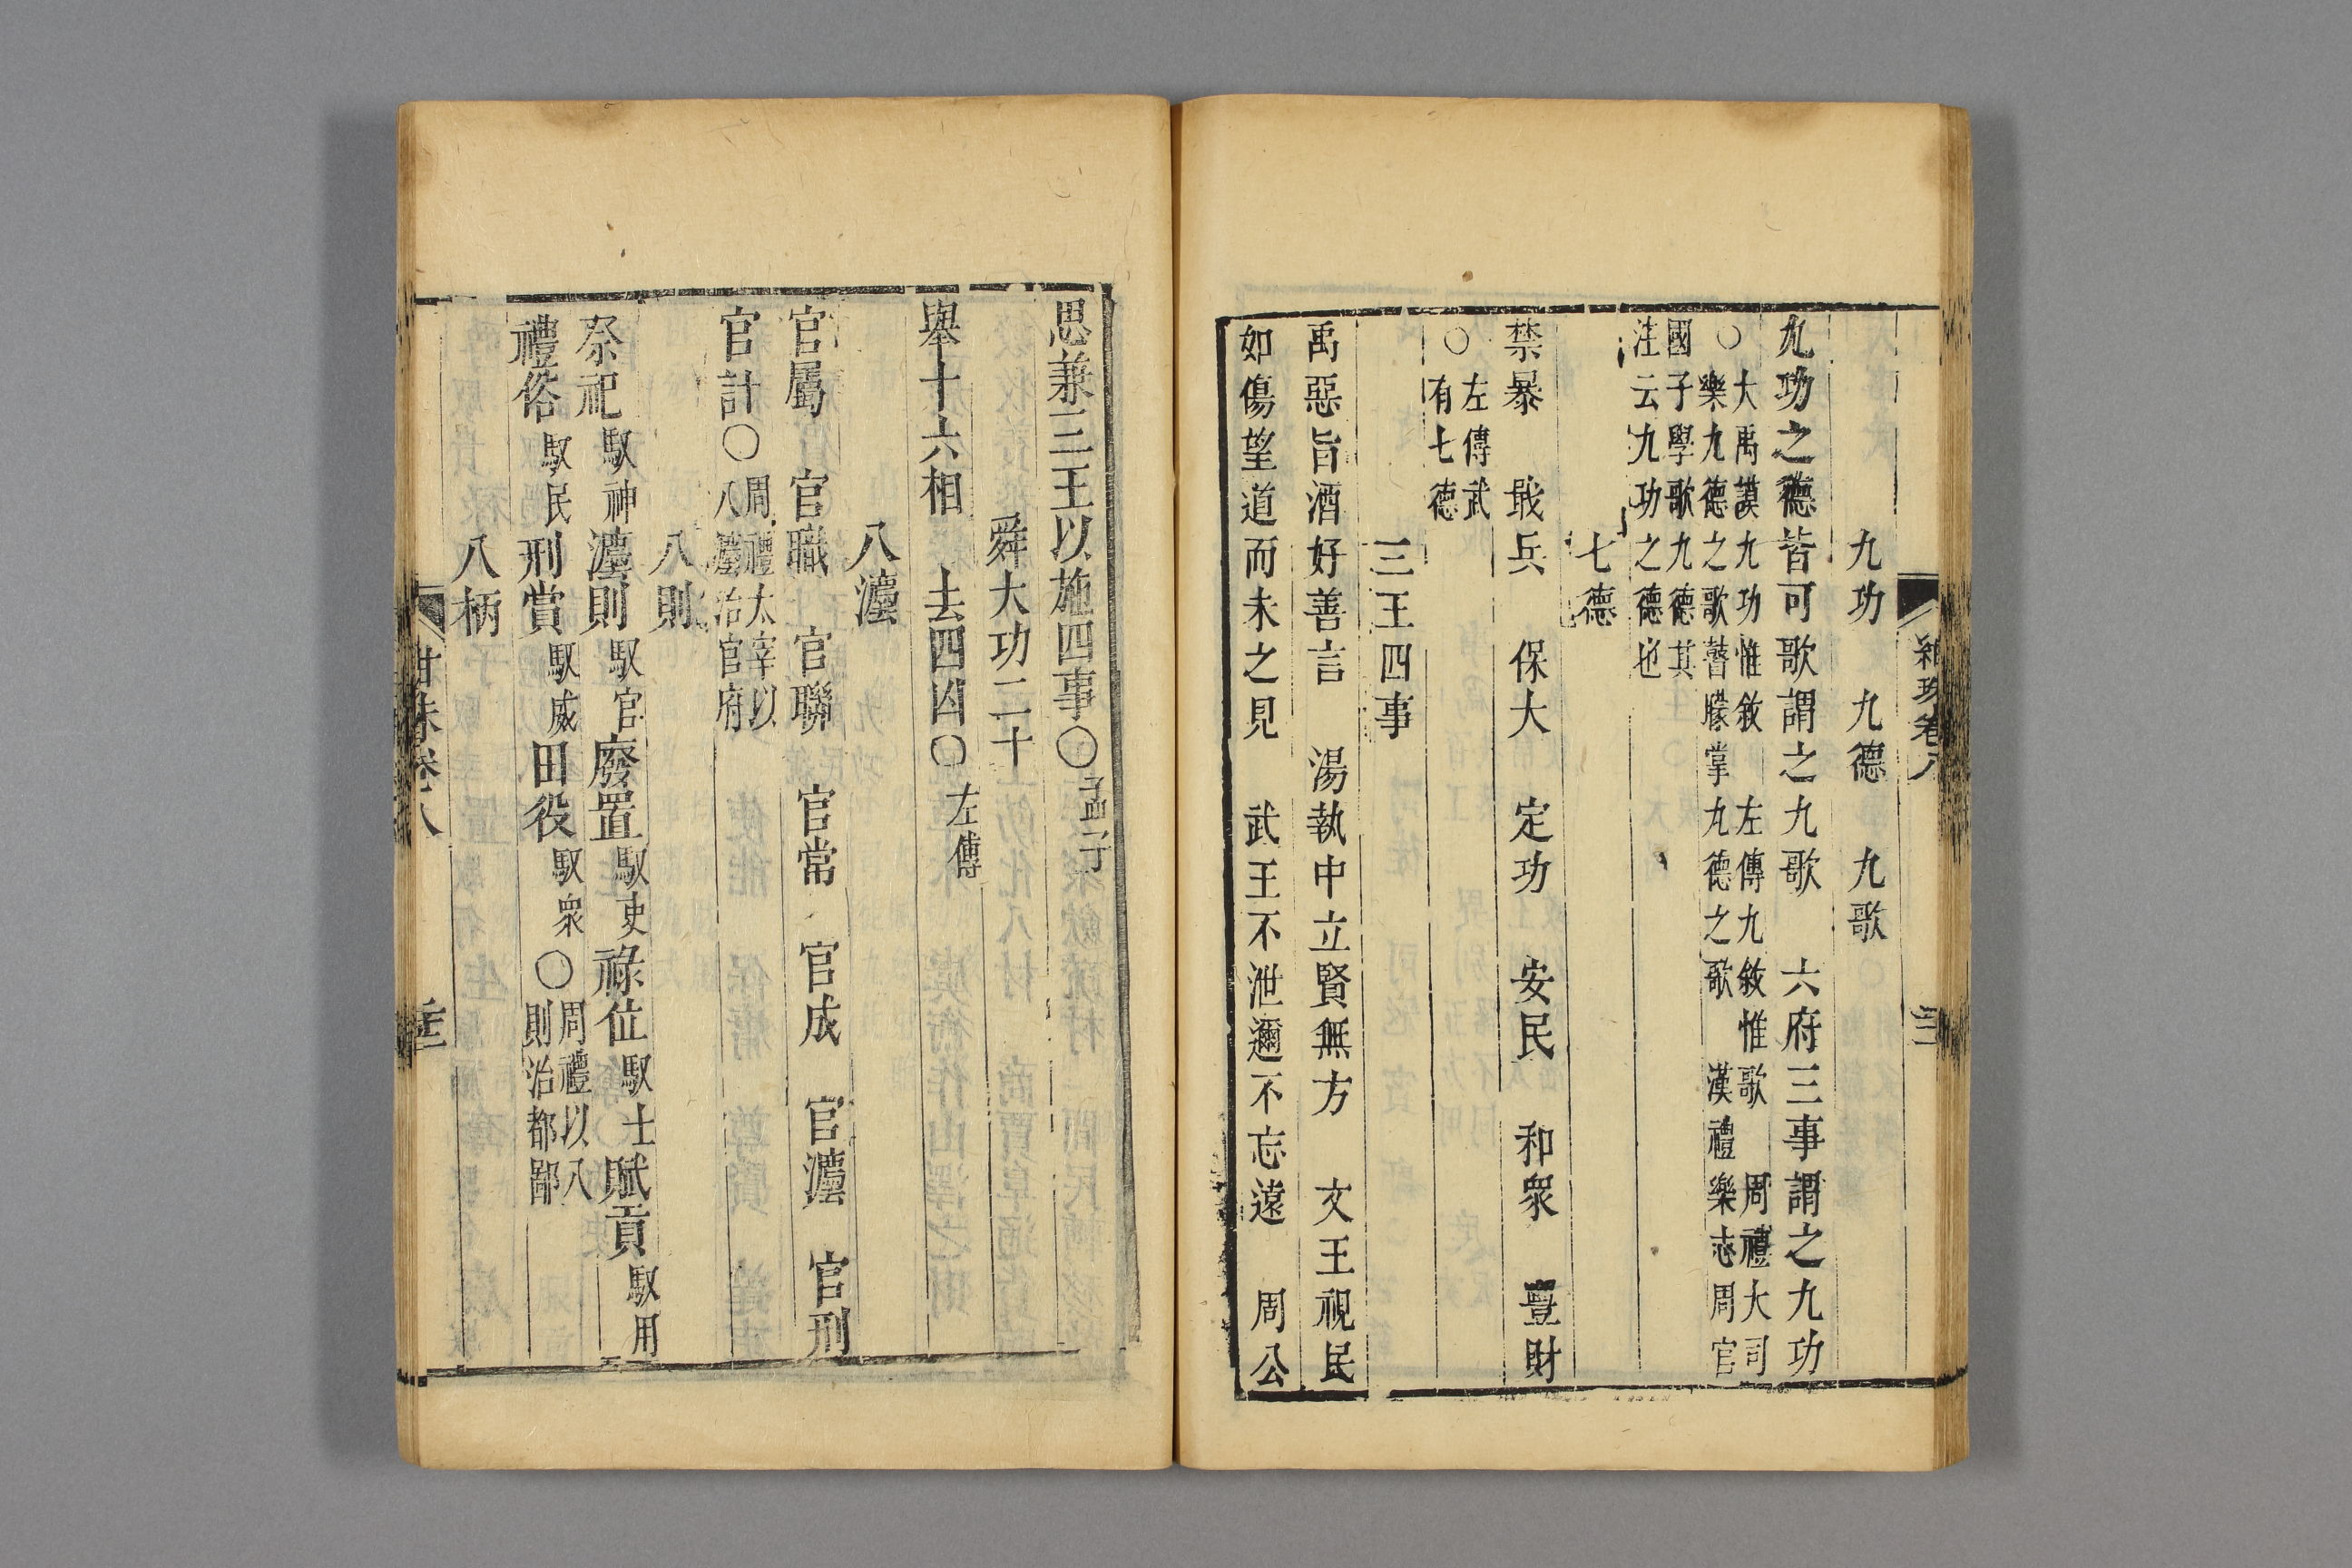 九功　九德　九歌
九功之德皆可歌謂之九歌　六府三事謂之九功
○大禹謨九功惟敘　左傳九敘惟歌　周禮大司
樂九德之歌瞽矇掌九德之歌　漢禮樂志周官
國子學歌九德其
注云九功之德也
七德
禁暴　戢兵　保大　定功　安民　和衆　豐財
○左傳武
有七德
三王四事
禹惡旨酒好善言　湯執中立賢無方　文王視民
如傷望道而未之見　武王不泄邇不忘遠　周公
思兼三王以施四事○孟子
舜大功二十
舉十六相　去四凶○左傳
八灋
官屬　官職　官聯　官常　官成　官灋　官刑
官計○周禮太宰以
八灋治官府
八則
祭祀馭神灋則馭官廢置馭吏祿位馭士賦貢馭用
禮俗馭民刑賞馭威田役馭衆○周禮以八
則治都鄙
八柄